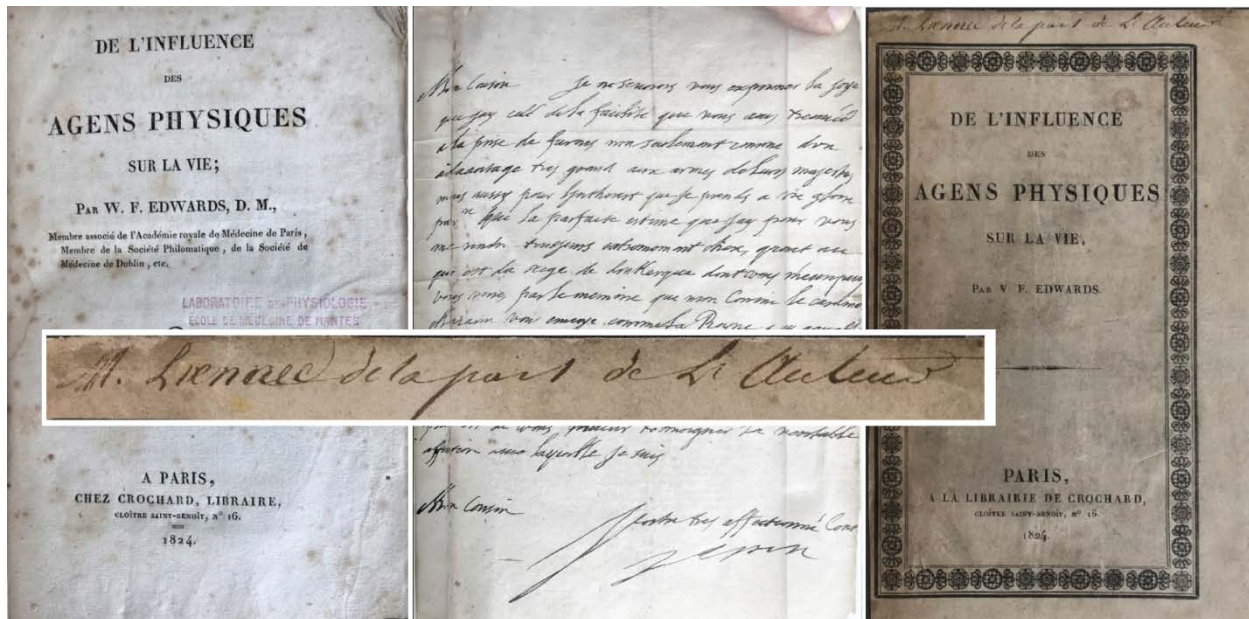 DE L'INFLUENCE
DES
AGENS PHYSIQUES
SUR LA VIE;
PAR W. F. EDWARDS, D. M.,
Membre associé de l'Académie royale de Médecine de Paris,
Membre de la Société Philomatique, de la Société de
Médecine de Dublin, etc.
LABORATOIRE DE PHYSIOLOGIE
ECOLE DE MEDECINE DE NANTES
A PARIS,
CHEZ CROCHARD, LIBRAIRE,
CLOÎTRE SAINT-BENOÎT, N° 16.
1824.
Mon Cousin Je ne vous exprimer la joye
que jay de la facilité que vous avez
a la prise de furnes non seulement comme dun
advantage tres grand aux armes de leurs majestés
mais aussy pour que je prends a vre gloire
que la parfaite estime que jay pour vous
me rendra tousjours chere,
qui est du siege de
vous par le memoire que mon Cousin le cardinal
vous envoye comme la Reyne
de vous tesmoigner la veritable
affection avec laquelle je suis
Mon Cousin
Vostre tres affectionné
M. Laennec de la part de L'Auteur
M. Laennec de la part de L'Auteur
DE L'INFLUENCE
DES
AGENS PHYSIQUES
SUR LA VIE,
PAR V. F. EDWARDS.
PARIS,
A LA LIBRAIRIE DE CROCHARD,
CLOÎTRE SAINT-BENOÎT, N° 16.
1824.